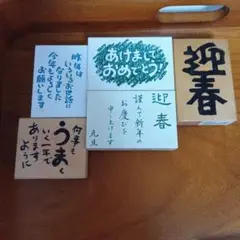 昨年は
いろいろお世話に
なりました
今年もよろしく
お願いします
あけまして
おめでとう!
迎春
迎春
謹んで新年の
お慶びを
申し上げます
元旦
何事も
うまく
いく一年で
あります
ように